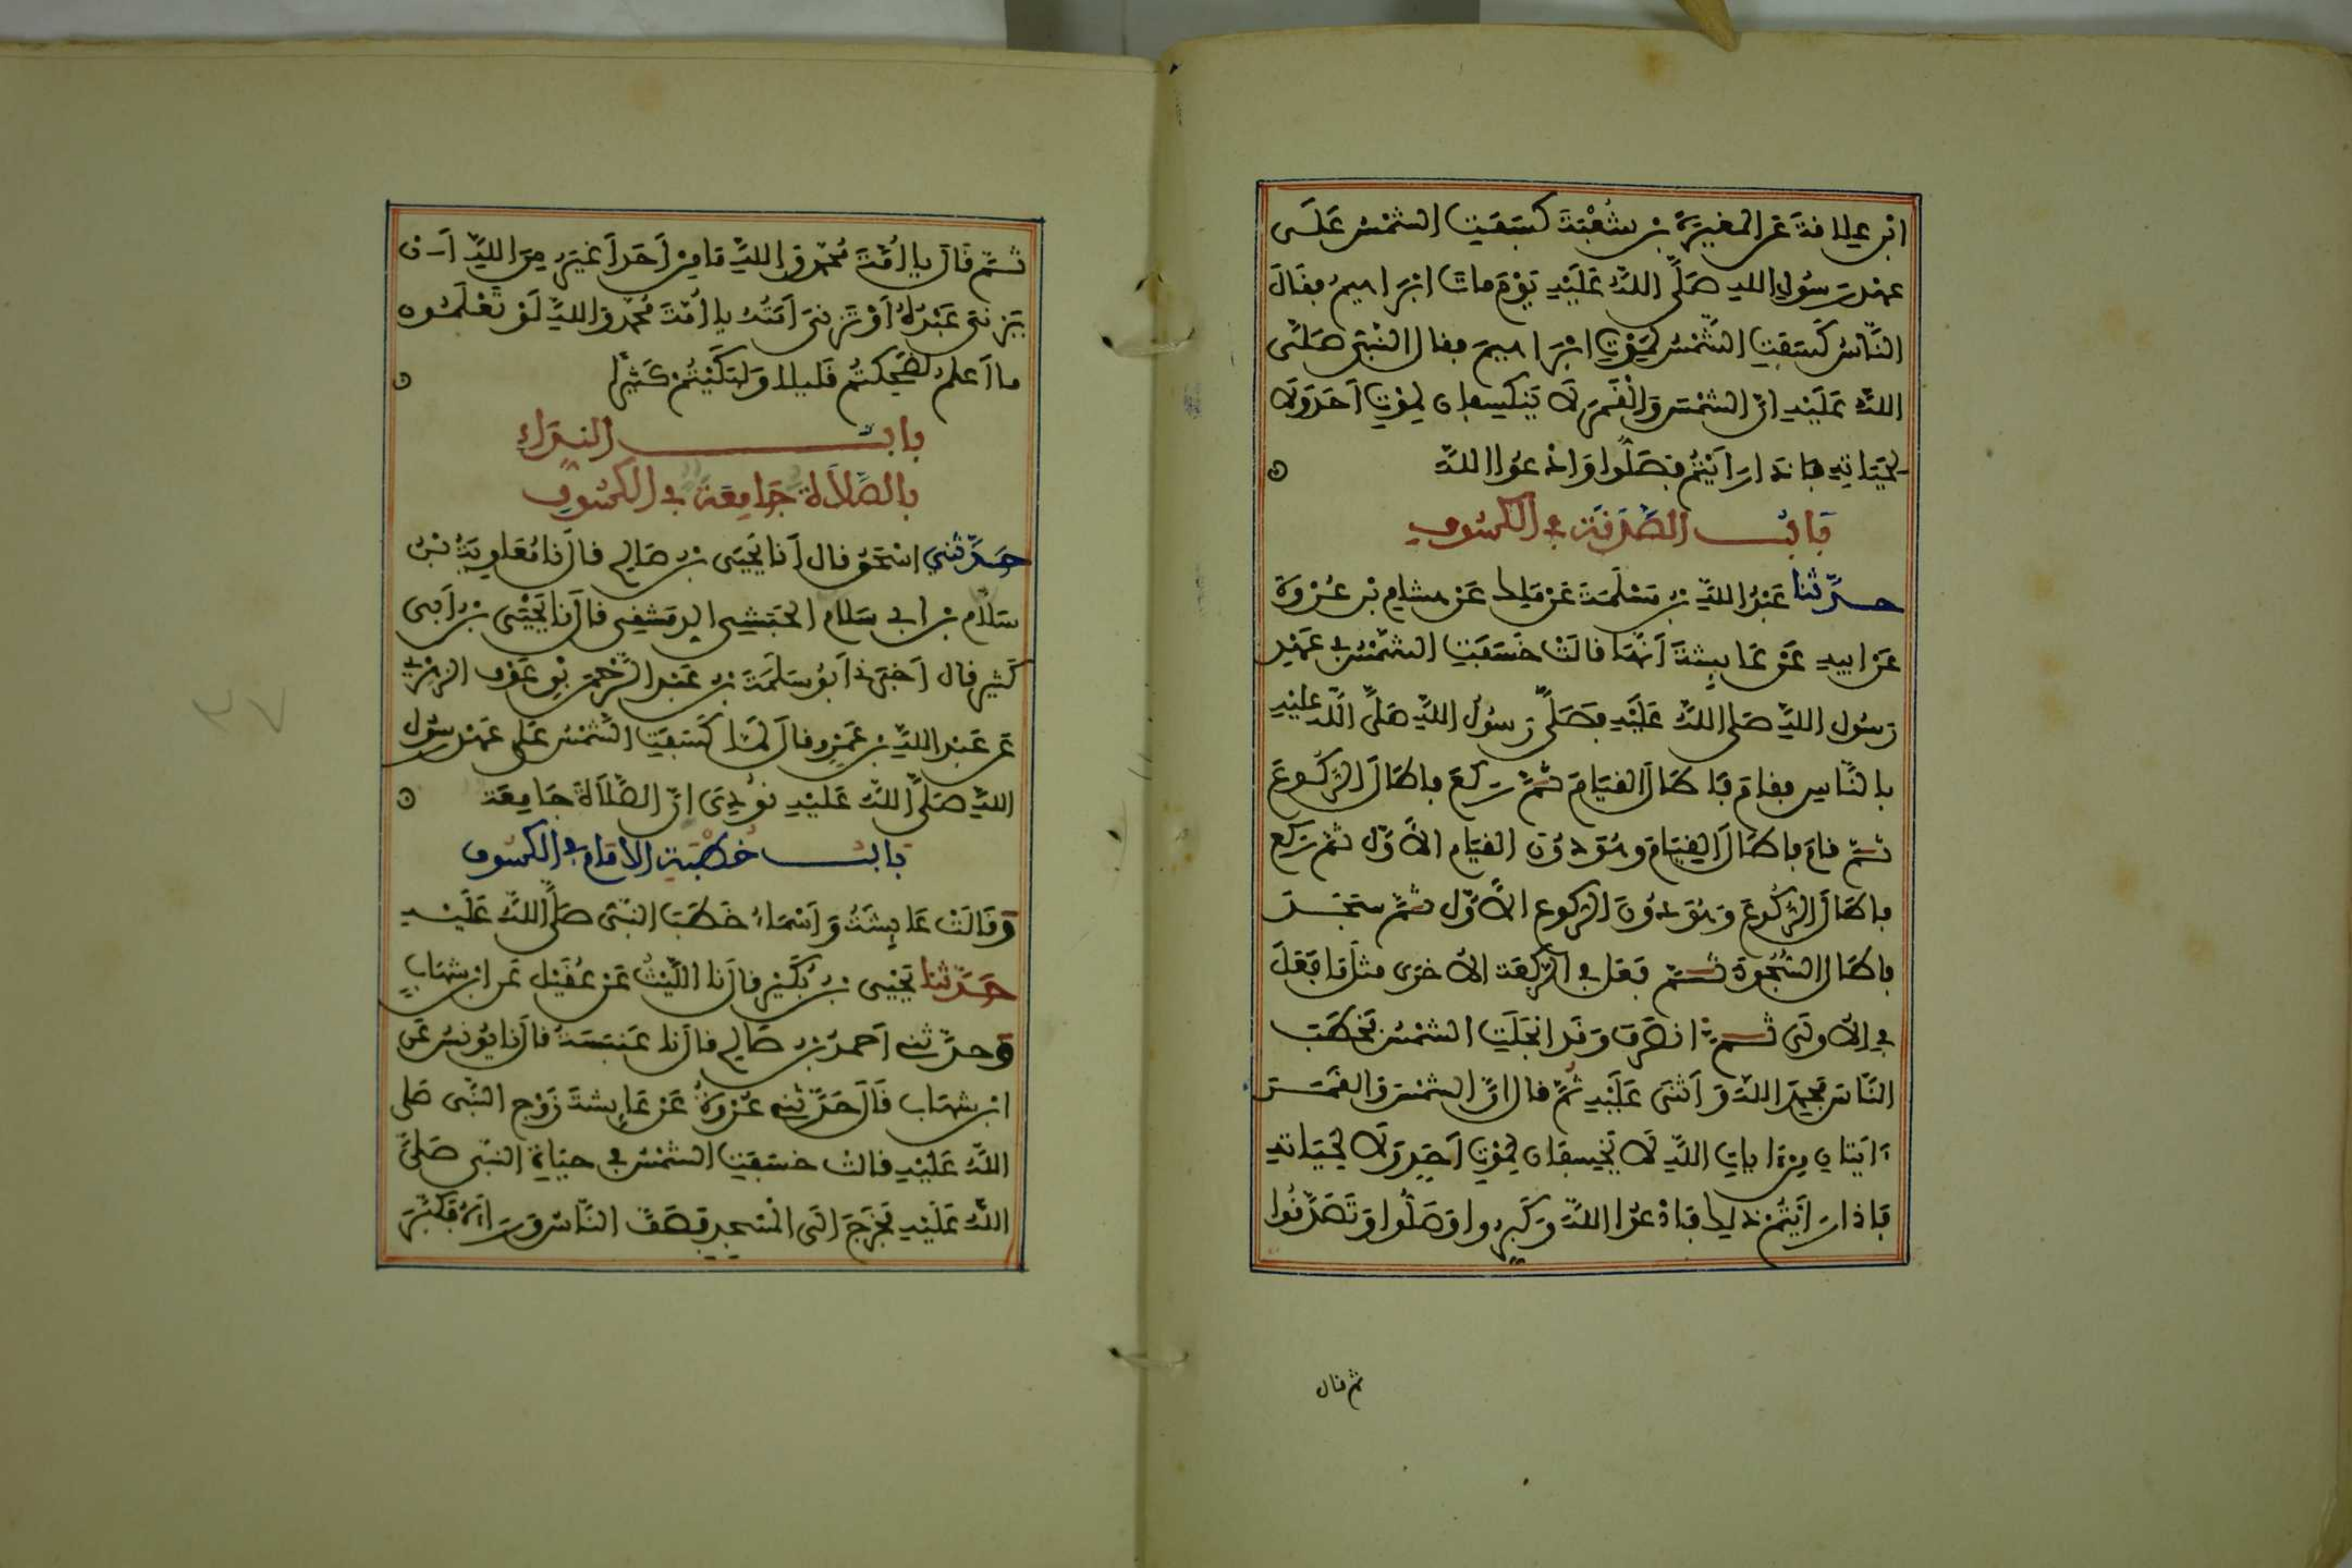 ابن علافة عن المغيرة بن شعبة كسفت الشمس على
عهد رسول الله صلى الله عليه يوم مات ابراهيم فقال
الناس كسفت الشمس لموت ابراهيم فقال النبي صلى
الله عليه ان الشمس والقمر لا ينكسفان لموت احد ولا
لحياته فاذا رايتم فصلوا وادعوا الله
باب الصدقة في الكسوف
حدثنا عبد الله بن مسلمة عن ملك عن هشام بن عروة
عن ابيه عن عايشة انها قالت خسفت الشمس في عهد
رسول الله صلى الله عليه فصلى رسول الله صلى الله عليه
بالناس فقام فاطال القيام ثم ركع فاطال الركوع
ثم قام فاطال القيام وهو دون القيام الاول ثم ركع
فاطال الركوع وهو دون الركوع الاول ثم سجد
فاطال السجود ثم فعل في الركعة الاخرى مثل ما فعل
في الاولى ثم انصرف وقد انجلت الشمس فخطب
الناس فحمد الله واثنى عليه ثم قال ان الشمس والقمر
ءايتان من ءايات الله لا يخسفان لموت احد ولا لحياته
فاذا رايتم ذلك فادعوا الله وكبروا وصلوا وتصدقوا
ثم قال
ثم قال يا امة محمد والله ما من احد اغير من الله ان
يزني عبده او تزني امته يا امة محمد والله لو تعلمون
ما اعلم لضحكتم قليلا ولبكيتم كثيرا
باب النداء
بالصلاة جامعة في الكسوف
حدثني اسحق قال انا يحيى بن صالح قال نا معاوية بن
سلام بن ابي سلام الحبشي الدمشقي قال نا يحيى بن ابي
كثير قال اخبرني ابو سلمة بن عبد الرحمن بن عوف الزهري
عن عبد الله بن عمرو قال لما كسفت الشمس على عهد رسول
الله صلى الله عليه نودي ان الصلاة جامعة
باب خطبة الامام في الكسوف
وقالت عايشة واسماء خطب النبي صلى الله عليه
حدثنا يحيى بن بكير قال نا الليث عن عقيل عن ابن شهاب
وحدثني احمد بن صالح قال نا عنبسة قال نا يونس عن
ابن شهاب قال حدثني عروة عن عايشة زوج النبي صلى
الله عليه قالت خسفت الشمس في حياة النبي صلى
الله عليه فخرج الى المسجد فصف الناس وراءه فكبر
٢٧